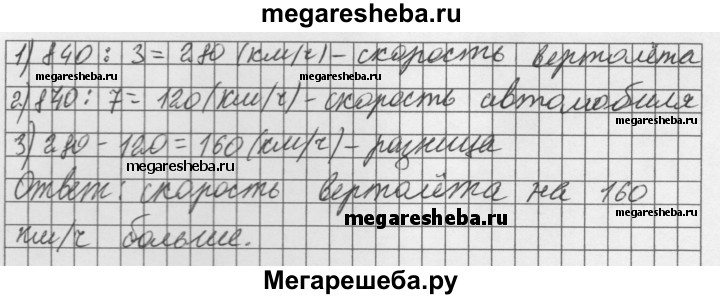 megaresheba.ru
1) 840 : 3 = 280 (км/ч) - скорость вертолёта
megaresheba.ru
megaresheba.ru
2) 840 : 7 = 120 (км/ч) - скорость автомобиля
3) 280 - 120 = 160 (км/ч) - разница
megaresheba.ru
Ответ: скорость вертолёта на 160
megaresheba.ru
megaresheba.ru
км/ч больше.
Мегарешеба.ру